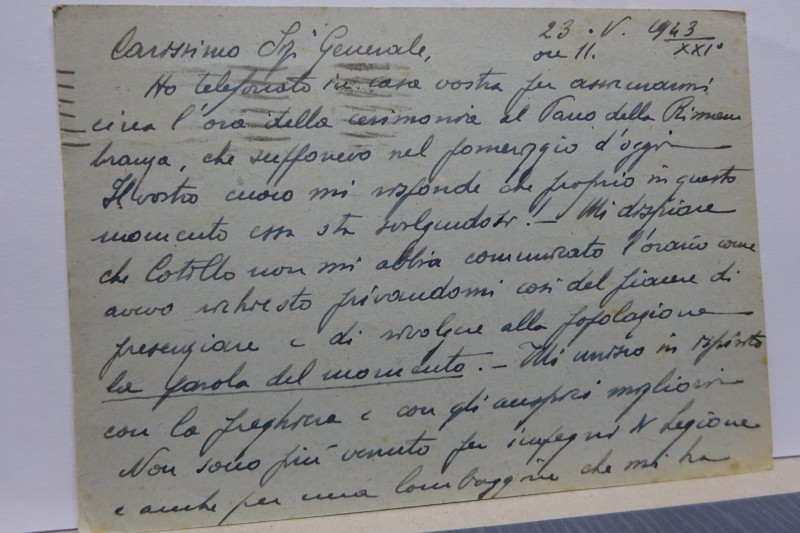 23.V.1943
XXI°
ore 11.
Carissimo Sig Generale,
Ho telefonato in casa vostra per assicurarmi
circa l'ora della cerimonia al Parco della Rimem
branza, che supponevo nel pomeriggio d'oggi
Il vostro cuoco mi risponde che proprio in questo
momento essa sta svolgendosi! - Mi dispiace
che Cotillo non mi abbia comunicato l'orario come
avevo richiesto privandomi così del piacere di
presenziare e di rivolgere alla popolazione
la parola del momento. - Mi unisco in ispirito
con la preghiera e con gli auspici migliori
Non sono più venuto per impegni di Legione
e anche per una lombaggine che mi ha